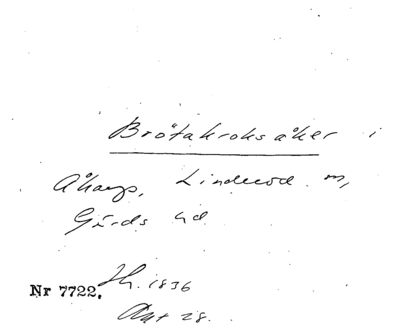 Brötakroksåker i
Åkarp, Linderöd sn,
Gärds hd
Nr 7722. Jk. 1836
Akt 28.